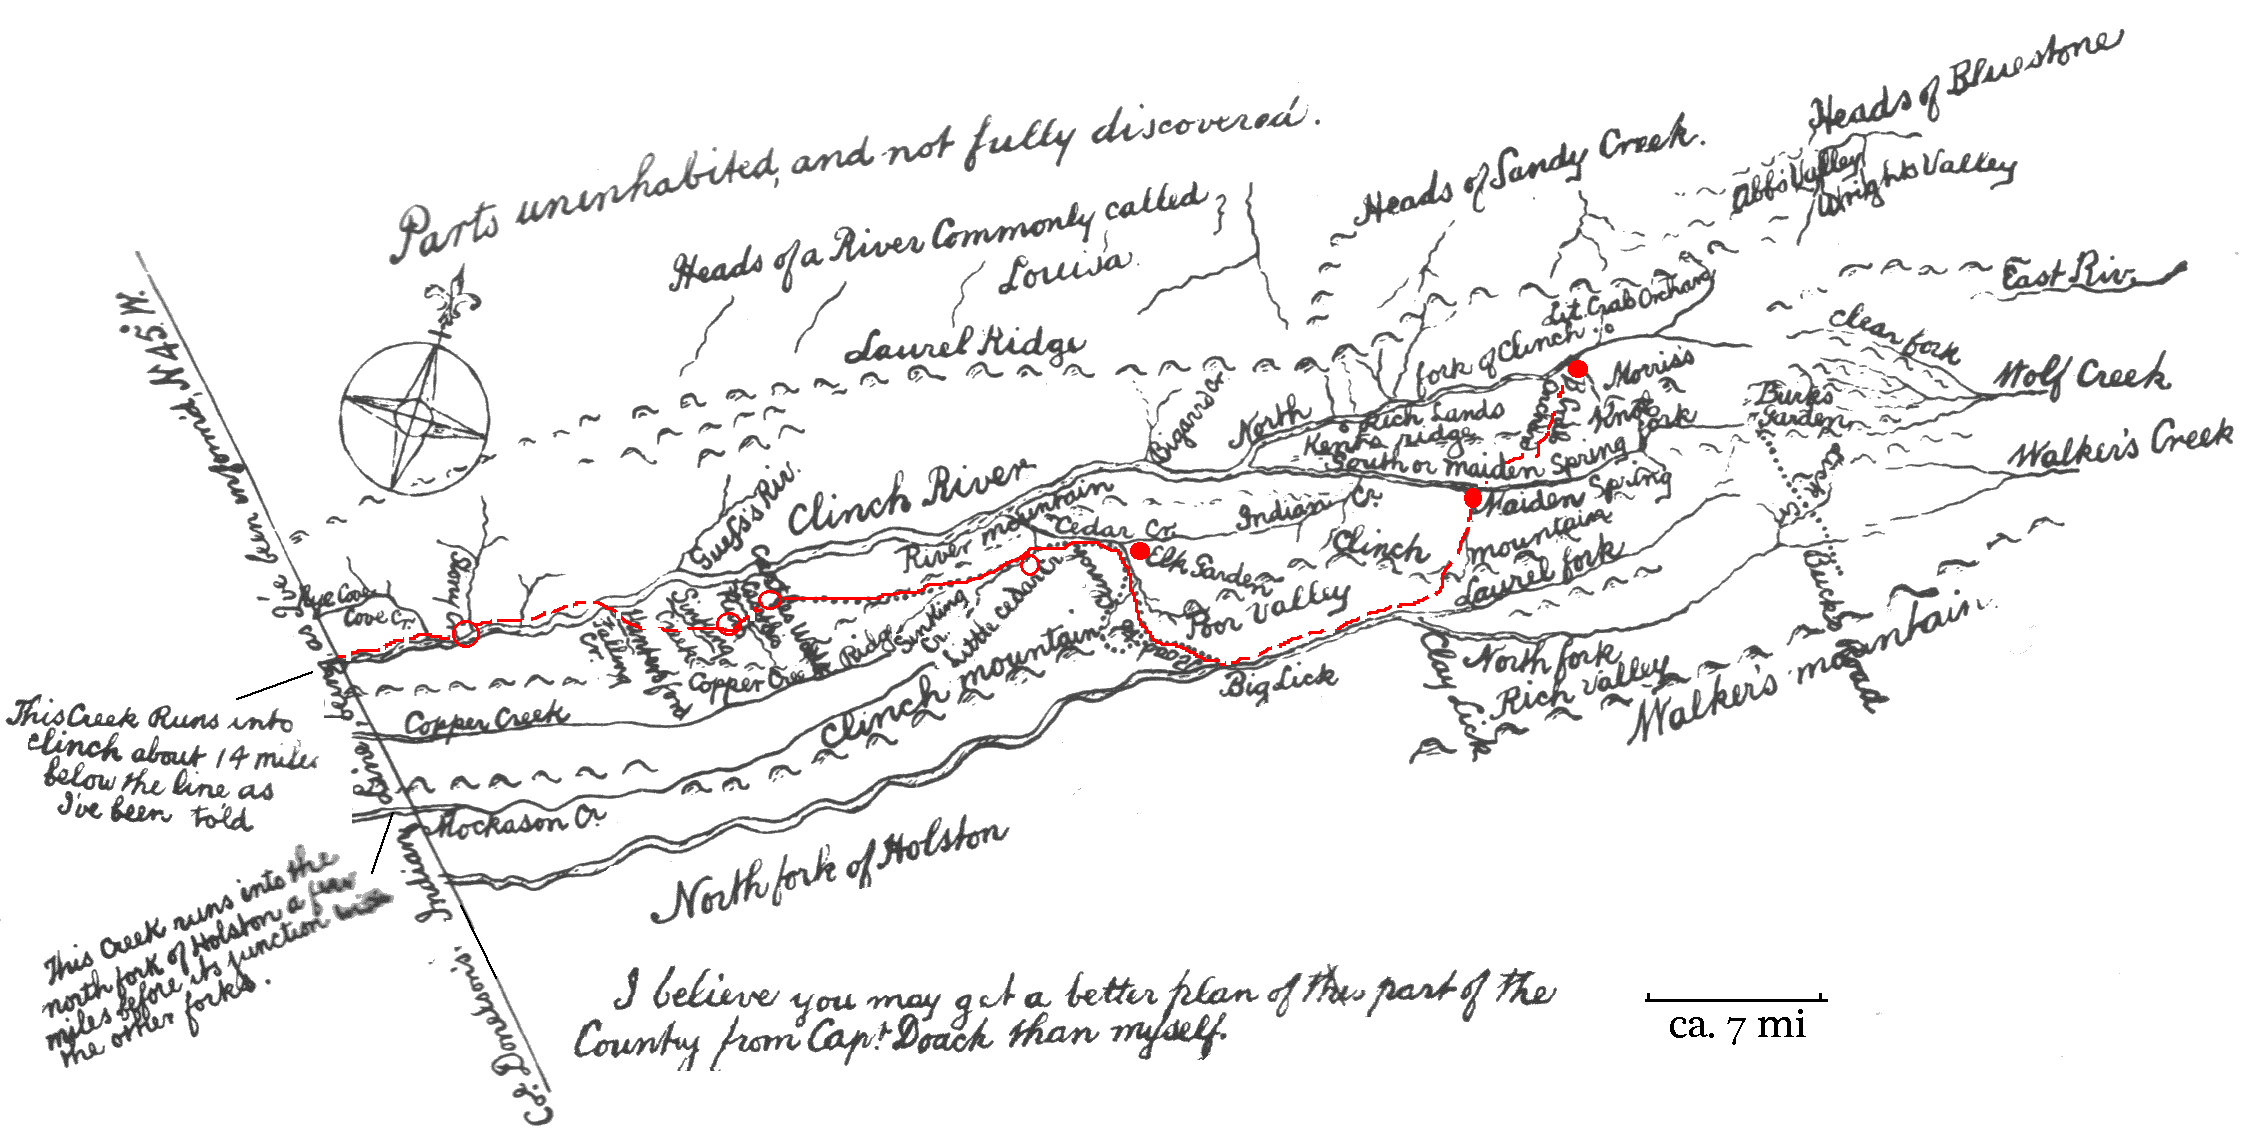 Parts uninhabited, and not fully discovered.
Heads of a River Commonly called
Louisa
Heads of Sandy Creek.
Heads of Bluestone
Abb's Valley
Wrights Valley
Laurel Ridge
East Riv.
Clear fork
Wolf Creek
Walker's Creek
Burks
Garden
Lit. Crab Orchard
North fork of Clinch
Morris's
Knob
Rich Lands
Kents ridge
South or maiden Spring fork
Maiden Spring
mountain
Clinch mountain
Indian Cr.
Cedar Cr.
Elk Garden
Poor Valley
Laurel fork
Clinch River
River mountain
Guess's Riv.
Stony Cr.
Rye Cove
Cove Cr.
Falling
Cr.
Sinking
Creek
Copper Creek Ridge
Sinking
Cr.
Little Cedar Cr.
Copper Creek
Clinch mountain
Mockason Cr.
North fork of Holston
Big Lick
Clay Lick
North fork
Rich Valley
Walker's mountain
Bucks Road
Creek
N. 45 W.
Col. Donelson's Indian line
being, as I've been inform'd,
This Creek Runs into
Clinch about 14 miles
below the line as
I've been told
This Creek runs into the
north fork of Holston a few
miles before its junction with
the other forks.
I believe you may get a better plan of this part of the
Country from Capt. Doack than myself.
ca. 7 mi